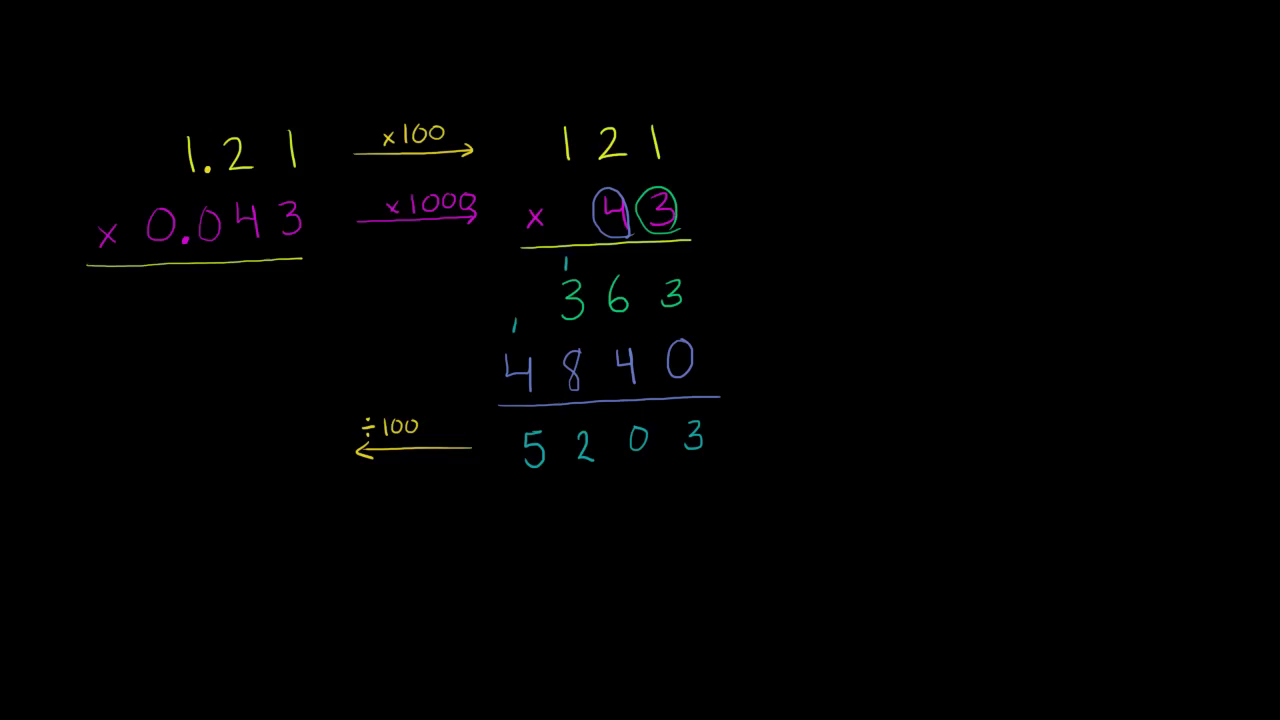 1.21 ×100 121
× 0.043 ×1000 × 43
1
363
1
4840
÷100 5203